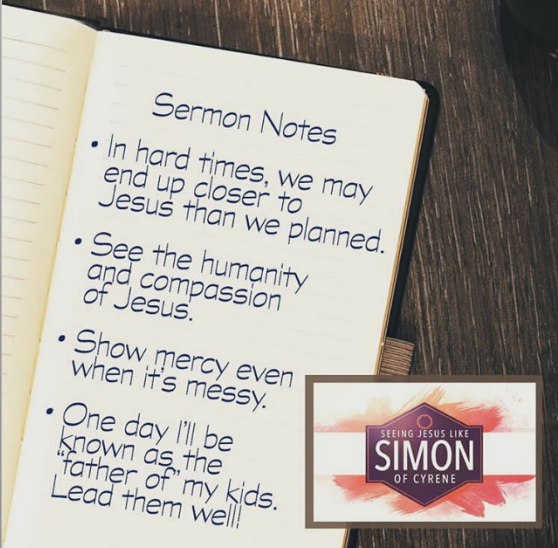 Sermon Notes
• In hard times, we may
end up closer to
Jesus than we planned.
• See the humanity
and compassion
of Jesus.
• Show mercy even
when it's messy.
• One day I'll be
known as the
"father of" my kids.
Lead them well!
SEEING JESUS LIKE
SIMON
OF CYRENE